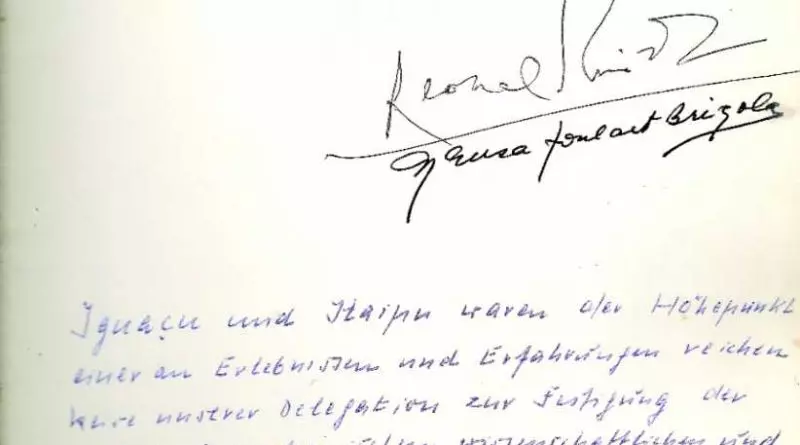 Leonel Brizola
Neusa Goulart Brizola
Iguaçu und Itaipu waren der Höhepunkt
einer an Erlebnissen und Erfahrungen reichen
Reise unserer Delegation zur Festigung der
wissenschaftlichen und